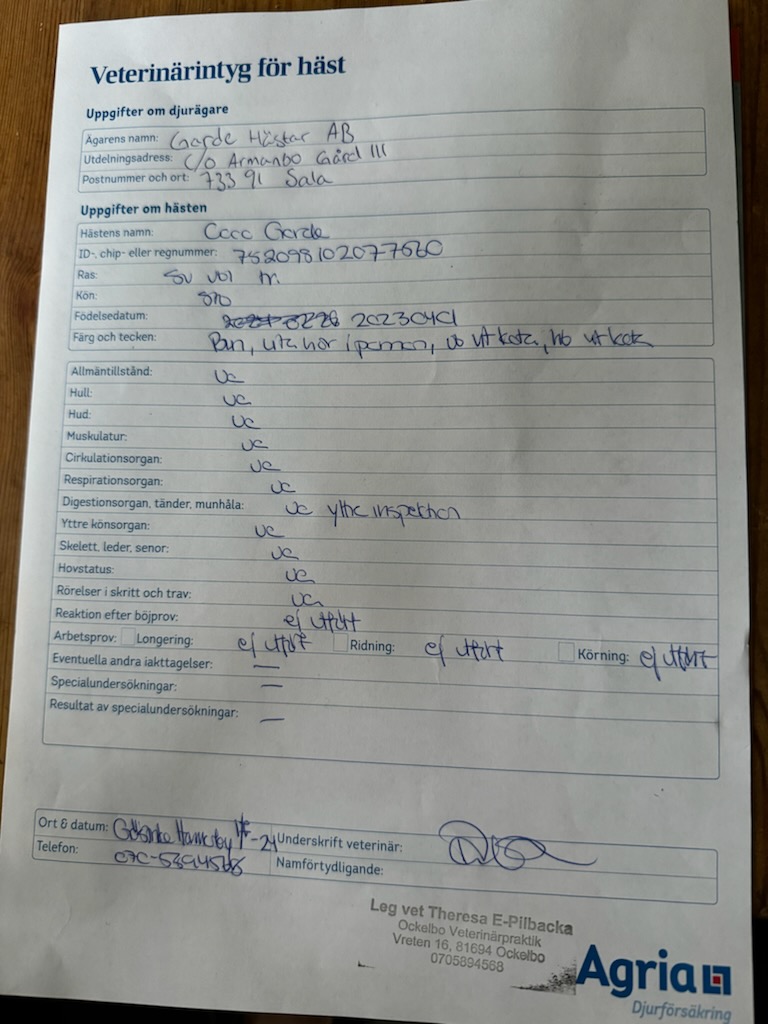 Veterinärintyg för häst
Uppgifter om djurägare
Ägarens namn: Garde Hästar AB
Utdelningsadress: c/o Armanbo Gård 111
Postnummer och ort: 733 91 Sala
Uppgifter om hästen
Hästens namn: Coco Garde
ID-, chip- eller regnummer:
Ras: Sv
Kön: sto
Födelsedatum: 20230401
Färg och tecken: vita hår i pannan, vb vit kota, hb vit kota
Allmäntillstånd: ua
Hull: ua
Hud: ua
Muskulatur: ua
Cirkulationsorgan: ua
Respirationsorgan: ua
Digestionsorgan, tänder, munhåla: ua yttre inspektion
Yttre könsorgan: ua
Skelett, leder, senor: ua
Hovstatus: ua
Rörelser i skritt och trav: ua
Reaktion efter böjprov: ej utfört
Arbetsprov: Longering: ej utfört Ridning: ej utfört Körning: ej utfört
Eventuella andra iakttagelser: —
Specialundersökningar: —
Resultat av specialundersökningar: —
Ort & datum: Underskrift veterinär:
Telefon: 070-5894568 Namförtydligande:
Leg vet Theresa E-Pilbacka
Ockelbo Veterinärpraktik
Vreten 16, 81694 Ockelbo
0705894568
Agria
Djurförsäkring